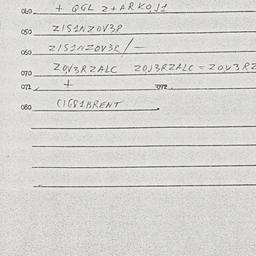 040 + QGL Z+ARKOJ1
050 Z1S1NZOV3P
060 Z1S1NZOV3R/—
070 ZOV3RZALC ZOJ3RZALC = ZOV3RZ
071 + 072
080 C1GS1BRENT